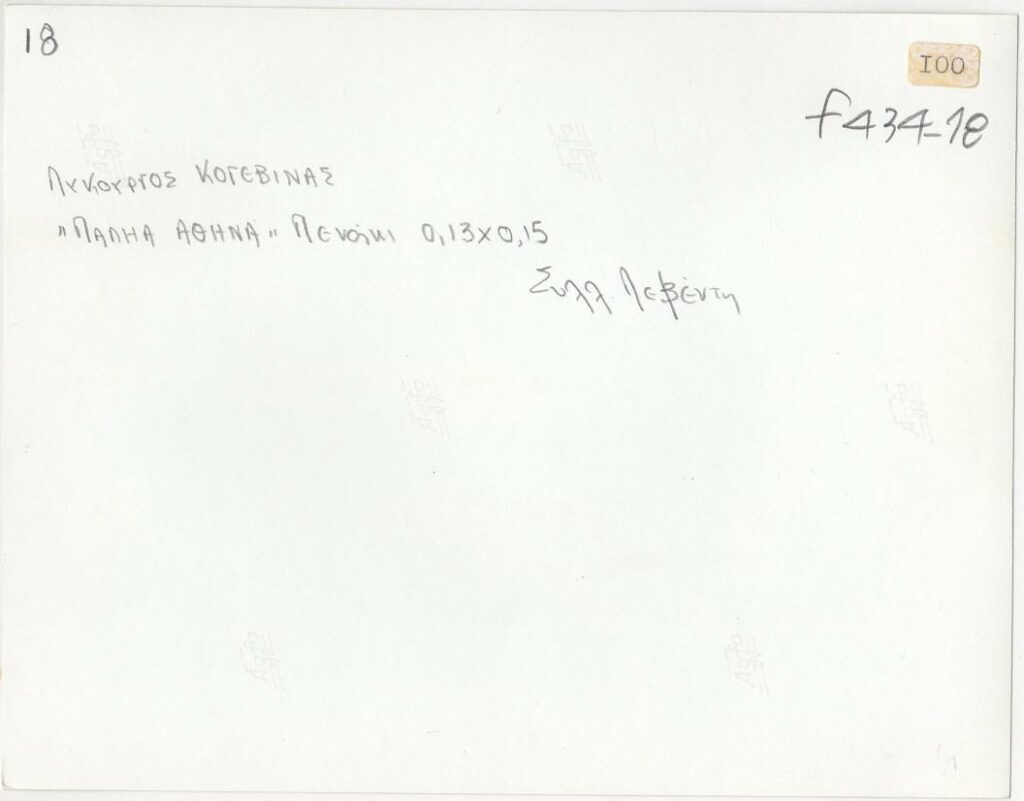 18
100
f434-18
Λυκουργος ΚΟΓΕΒΙΝΑΣ
"ΠΑΛΗΑ ΑΘΗΝΑ" Πενάκι 0,13x0,15
Συλλ. Λεβέντη